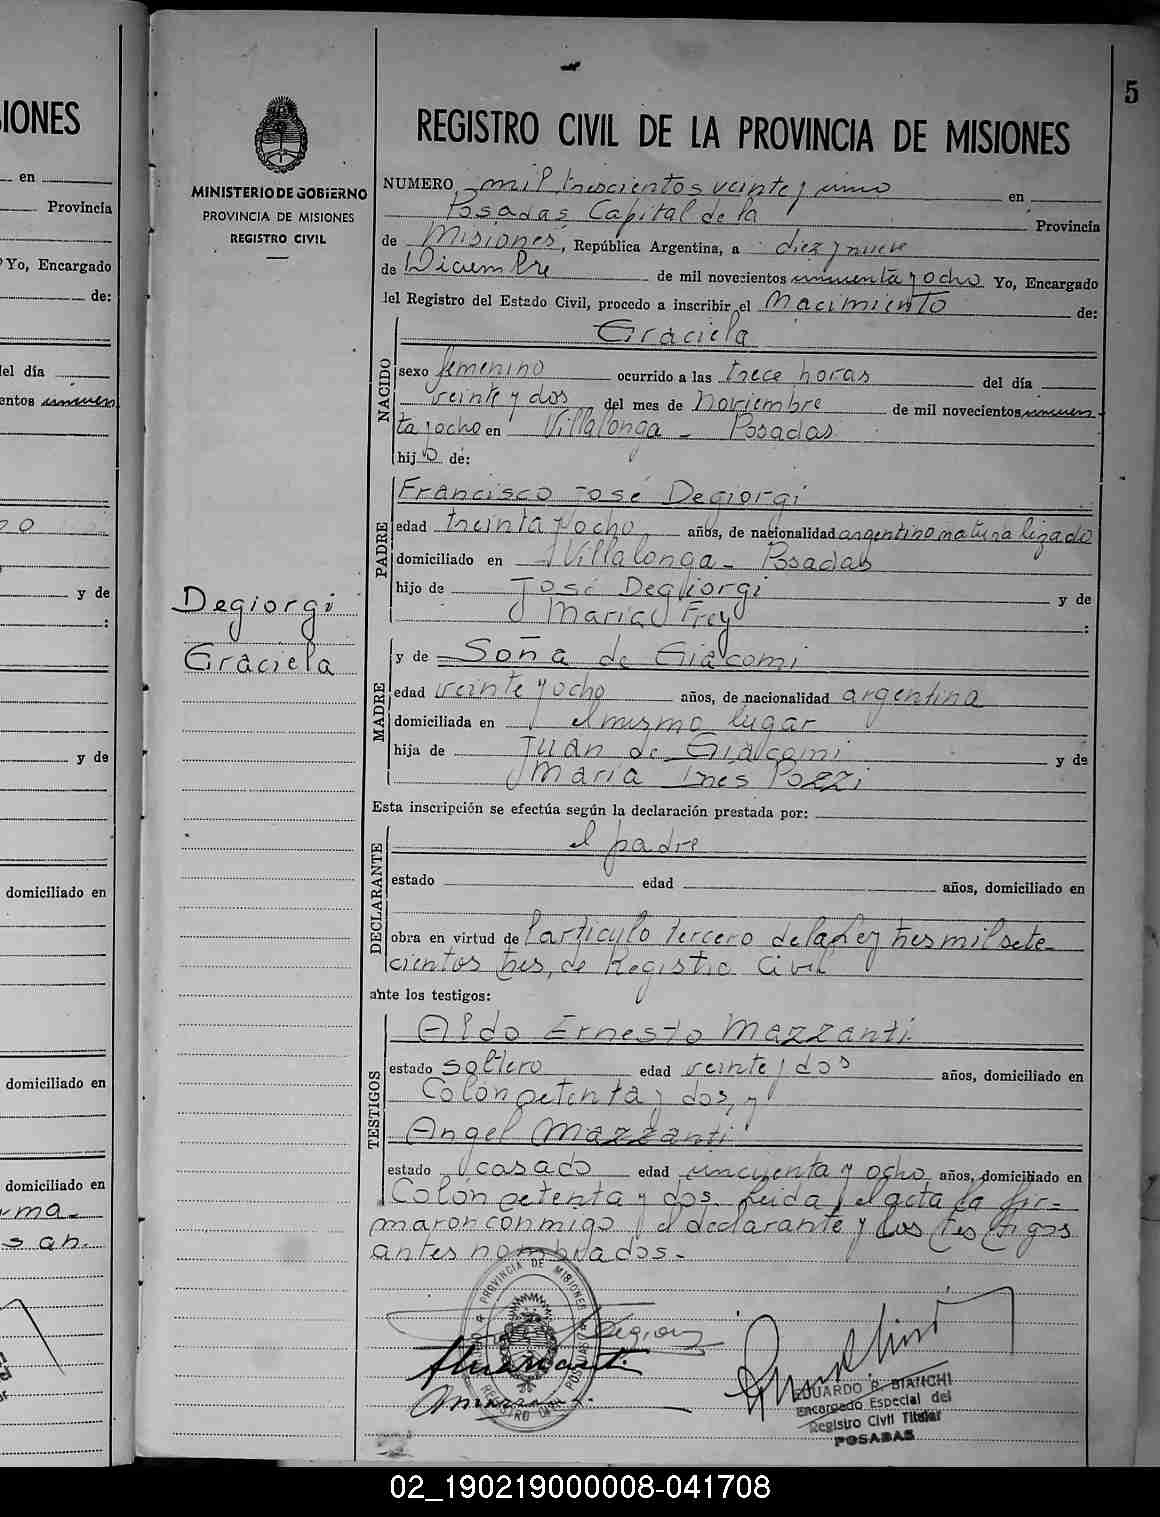 IONES
en
Provincia
Yo, Encargado
de:
del día
entos cincuen
y de
:
y de
domiciliado en
domiciliado en
domiciliado en
MINISTERIO DE GOBIERNO
PROVINCIA DE MISIONES
REGISTRO CIVIL
Degiorgi
Graciela
5
REGISTRO CIVIL DE LA PROVINCIA DE MISIONES
NUMERO mil trescientos veinte y uno en
Posadas Capital de la Provincia
de Misiones, República Argentina, a diez y nueve
de Diciembre de mil novecientos cincuenta y ocho Yo, Encargado
del Registro del Estado Civil, procedo a inscribir el Nacimiento de:
NACIDO
Graciela
sexo femenino ocurrido a las trece horas del día
veinte y dos del mes de Noviembre de mil novecientos cincuen
ta y ocho en Villalonga - Posadas
hij a de:
PADRE
Francisco José Degiorgi
edad treinta y ocho años, de nacionalidad argentino naturalizado
domiciliado en Villalonga - Posadas
hijo de José Degiorgi y de
María Frey :
MADRE
y de Soña de Giacomi
edad veinte y ocho años, de nacionalidad argentina
domiciliada en el mismo lugar
hija de Juan de Giacomi y de
María Ines Pozzi
Esta inscripción se efectúa según la declaración prestada por:
DECLARANTE
el padre
estado edad años, domiciliado en
obra en virtud de l'articulo tercero de la Ley tres mil sete-
cientos tres, de Registro Civil
ante los testigos:
TESTIGOS
Aldo Ernesto Mazzanti
estado soltero edad veinte y dos años, domiciliado en
Colón setenta y dos, y
Angel Mazzanti
estado casado edad cincuenta y ocho años, domiciliado en
Colón setenta y dos. Leida el acta la fir-
maron conmigo el declarante y los testigos
antes nombrados.-
PROVINCIA DE MISIONES
REGISTRO CIVIL POSADAS
EDUARDO R. BIANCHI
Encargado Especial del
Registro Civil Titular
POSADAS
02_190219000008-041708